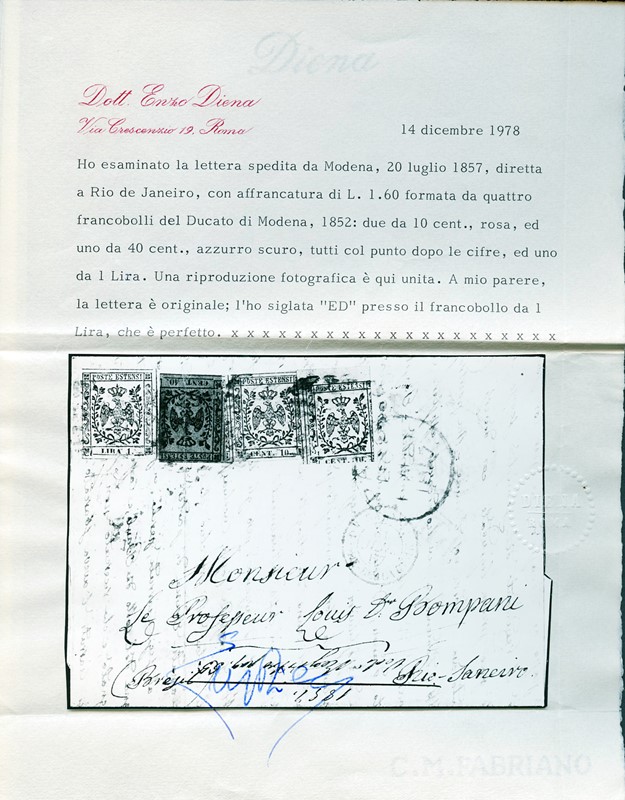 Diena
Dott. Enzo Diena
Via Crescenzio 19, Roma
14 dicembre 1978
Ho esaminato la lettera spedita da Modena, 20 luglio 1857, diretta
a Rio de Janeiro, con affrancatura di L. 1.60 formata da quattro
francobolli del Ducato di Modena, 1852: due da 10 cent., rosa, ed
uno da 40 cent., azzurro scuro, tutti col punto dopo le cifre, ed uno
da 1 Lira. Una riproduzione fotografica è qui unita. A mio parere,
la lettera è originale; l'ho siglata "ED" presso il francobollo da 1
Lira, che è perfetto. x x x x x x x x x x x x x x x x x x x x x
POSTE ESTENSI
LIRA 1.
CENT. 40.
POSTE ESTENSI
POSTE ESTENSI
CENT. 10.
POSTE ESTENSI
CENT. 10.
Monsieur
Le Professeur Louis Dr. Bompani
Brésil
Rio-Janeiro
C.M.FABRIANO